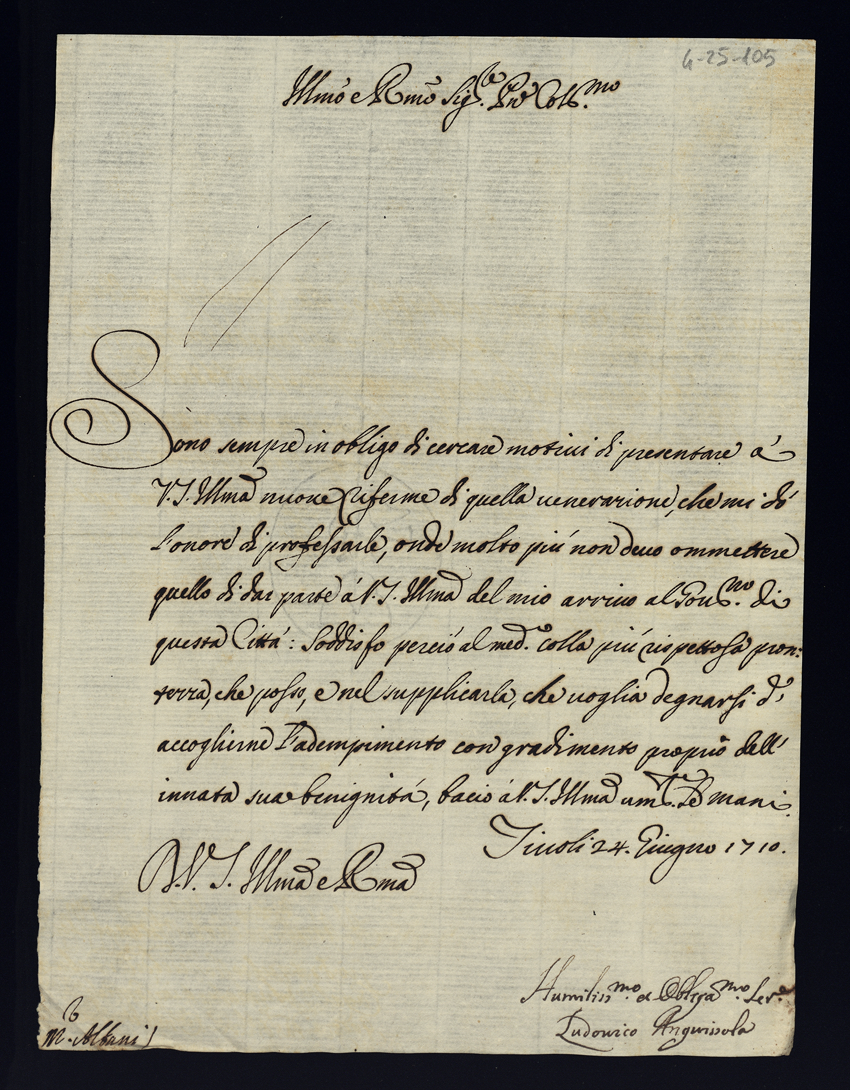 4-25-105
Illmo e Rmo Sig.re Pne Col.mo
Sono sempre in obligo di cercare motiui di presentare á
V.S. Illma nuoue riferme di quella uenerazione, che mi dó
l'onore di professarle, onde molto piú non deuo ommettere
quello di dar parte á V.S. Illma del mio arriuo al Gou.no di
questa Cittá: Soddisfo perció al med.o colla piú rispettosa pron:
tezza, che posso, e nel supplicarla, che uoglia degnarsi d'
accoglierne l'adempimento con gradimento proprio dell'
innata sua benignitá, bacio á V.S. Illma um.te le mani.
Tiuoli 24. Giugno 1710.
D.V.S. Illma e Rma
Humiliss.mo et Obliga.mo Ser.e
Ludovico Anguissola
M.r Albani